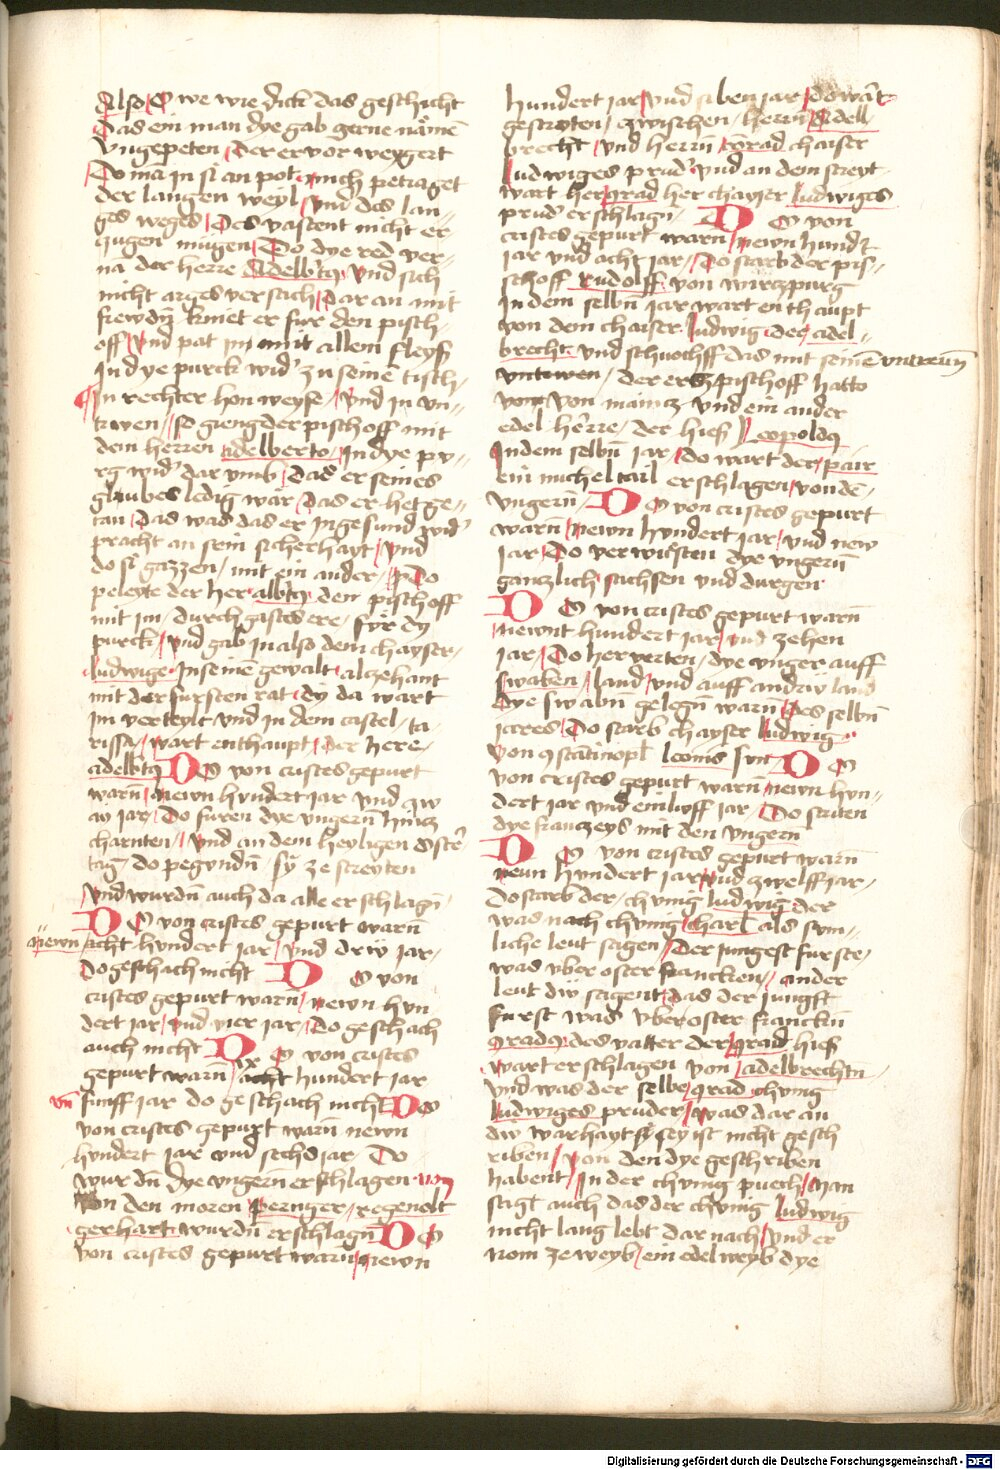 Also O we wie dick das geschicht
Das ein man dye gab gerne nāmē
Vngepeten / der er vor weygert
Do mā in si an pot · mich petraget
der langen weyl / vnd des lan=
ges weges / Des vastent nicht er
zugen mügen / Do dye red ver=
na der herre Adelbtꝯ vnd sich
nicht arges versach / Dar an mit
frewdn̄ kniet er fur den pisch=
off / Vnd pat jn mit allem fleyß
In dye purck wid' zu seinē tisch /
In rechter hon weyse / Vnd in vn=
trwen // so gieng der pischoff mit
dem herren adelberto / In dye pu=
rg wid' dar vmb / das er seines
glaubes ledig wär / das er het ge=
tan / Das was das er In gesund wid'
pracht an sein sicherhayt / vnd
do si gazzen / mit ein ander / Do
peleyte der her albtꝯ den pischoff
mit im / durch gastes ere / für dy
purck / vnd gab in also dem chayser /
ludwige · In seinē gewalt · alzehant
mit der fursten rat · dy da wart
im verteylt vnd in dem castel / ta=
rissa / wart enthaupt / der here /
adelbtꝯ DO von cristes gepurt
warn̄ / newn hvndert jar vnd zw
aÿ jar / Do furen dye vngern̄ hintz
charnten / vnd an dem heyligen oster
tag do pegvndn̄ sÿ ze streyten
Vnd wurdn̄ auch da alle erschlagn̄ ·
DO von cristes gepurt warn̄
newn acht hvndert jar / vnd drÿ jar /
Do geschach nicht DO von
cristes gepurt warn̄ / newn hvn
dert jar / vnd vier jar / Do geschach
auch nicht DO von cristes
gepurt warn̄ / ix acht hundert jar
vn̄ funff jar do geschach nicht DO
von cristes gepurt warn newn
hvndert jar vnd sechs jar Do
wurdn̄ dye vngern̄ erschlagen · von
von den moren / pernger / regenolt
gerhart wurdn̄ erschlagn̄ DO
von cristes gepurt warn / newn
hundert jar / vnd siben jar / do wart
gestryten / zwischen / herrn̄ Adell=
brecht / vnd herrn̄ conrad chaiser
Ludwiges prud' vnd an dem streyt
wart her conrad her chayser Ludwiges
prud' erschlagn̄ · DO von
cristes gepurt warn / newn hundt
jar vnd acht jar / Do starb der pis=
schoff rudolff · von wirczpurg
In dem selbn̄ jar wart enthaupt
von dem chaiser Ludwig · der adel=
brecht · vnd schuoff das mit seinē vntreun̄
vntrwen / der ercz pischoff hatto
von von maincz vnd ein ander
edel herre / der hieß Leopoldꝯ
In dem selbn̄ jar / do wart der pair
ein michel tail erschlagen / von dē /
Vngern̄ / DO von cristes gepurt
warn / newn hvndert jar / vnd new̄
jar / Do verwusten dye vngern̄
gantzlich sachsen vnd durgen
DO von cristes gepurt warn̄
newnt hundert jar / vnd zehen
jar / Do herverten / dye vnger auff
swaben / land / vnd auff andrÿ land
dye swabn̄ gelegn̄ warn / des selbn̄
jares / Do starb chayser Ludwig ·
von ꝯstātinopl leonis sun DO
von cristes gepurt warn̄ / newn hvn=
dert jar vnd einlyff jar / Do striten
dye franczeys mit den vngern
DO von cristes gepurt warn̄
newn hvndert jar / vnd zwelff jar /
Do starb der / chvnig ludwig der
was nach chvnig / charl als sym=
liche leut sagen / Der jungest furste /
was vber oster francken / ander
leut dÿ sagent / das der jungst
furst was vber oster franckn̄
ꝯradꝯ des vatter der ꝯrad hieß
wart erschlagen von / adelbrechtn̄
Vnd was der selbe ꝯrad chvnig
Ludwiges pruder / was dar an
dÿ warhayt sÿ sey ist nicht gesch
riben / Von den dye geschriben
habent / In der chvnig puech / Man
sagt auch das der chvnig Ludwig
nicht lang lebt dar nach / vnd er
nom ze weyb / ein edel weyb dye
Digitalisierung gefördert durch die Deutsche Forschungsgemeinschaft - DFG